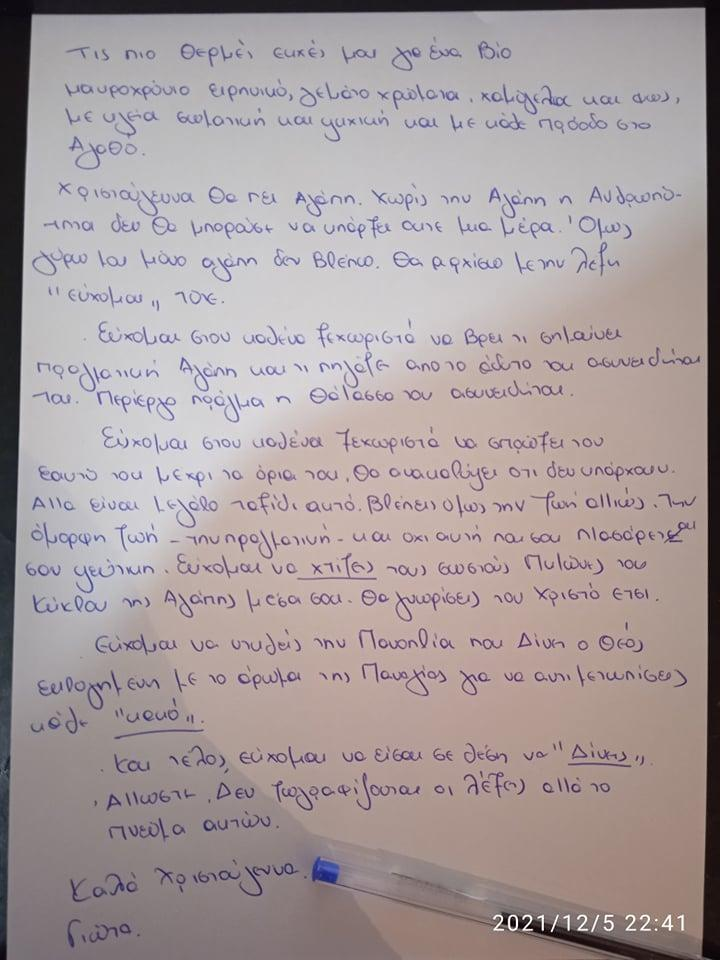 Τις πιο θερμές ευχές μου για ένα Βίο
μαυροχρόνιο ειρηνικό, γεμάτο χρώματα, χαμόγελα και φως,
με υγεία σωματική και ψυχική και με κάθε πρόοδο στο
Αγαθό.
Χριστούγεννα θα πει Αγάπη. Χωρίς την Αγάπη η Ανθρωπό-
τητα δεν θα μπορούσε να υπάρξει ούτε μια μέρα. Όμως
γύρω μου μόνο αγάπη δεν Βλέπω. Θα αρχίσω με την λέξη
"εύχομαι" τότε.
Εύχομαι στον καθένα ξεχωριστά να Βρει τι σημαίνει
πραγματική Αγάπη και τι πηγάζει από το άδυτο του ασυνειδήτου
του. Περίεργο πράγμα η Θάλασσα του ασυνειδήτου.
Εύχομαι στον καθένα ξεχωριστά να σπρώξει τον
εαυτό του μέχρι τα όρια του. Θα ανακαλύψει οτι δεν υπάρχουν.
Αλλα είναι μεγάλο ταξίδι αυτό. Βλέπει όμως την ζωή αλλιώς. Την
όμορφη ζωή - την πραγματική - και οχι αυτή που σου πλασάρεται
σου ψεύτικη. Εύχομαι να χτίζεις τους σωστούς Πυλώνες του
Κύκλου της Αγάπης μέσα σου. Θα γνωρίσεις τον Χριστό έτσι.
Εύχομαι να ντυθείς την Πανοπλία που Δίνει ο Θεός
ευλογημένη με το άρωμα της Παναγίας για να αντιμετωπίσεις
κάθε "κακό".
Και τέλος, εύχομαι να είσαι σε θέση να "Δίνεις".
Αλλωστε, Δεν ζωγραφίζονται οι λέξεις αλλά το
πνεύμα αυτών.
Καλά Χριστούγεννα.
Γιώτα.
2021/12/5 22:41